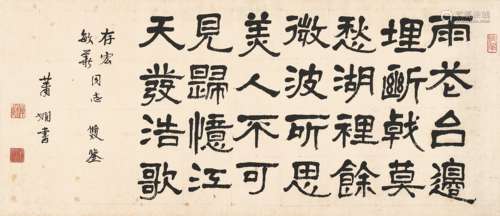 雨花台邊
埋斷戟莫
愁湖裡餘
微波所思
美人不可
見歸憶江
天發浩歌
存宏
敏 同志 雙鑒
蕭嫻書